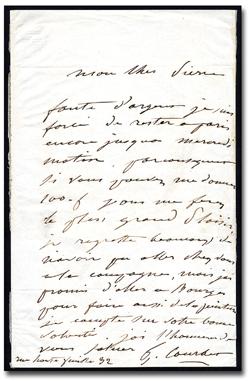 mon cher Pierre
faute d'argent je suis
forcé de rester a paris
encore jusqua mercredi
matin. parconsequent
si vous pouvez me donner
100 f vous me ferez
le plus grand plaisir
je regrette beaucoup de
navoir pas aller chez vous
a la campagne, mais jai
promis d'aller a
pour faire aussi de la peinture
je compte sur votre bonne
volonté jai l'honneur de
vous saluer G. Courbet
rue haute feuille 32